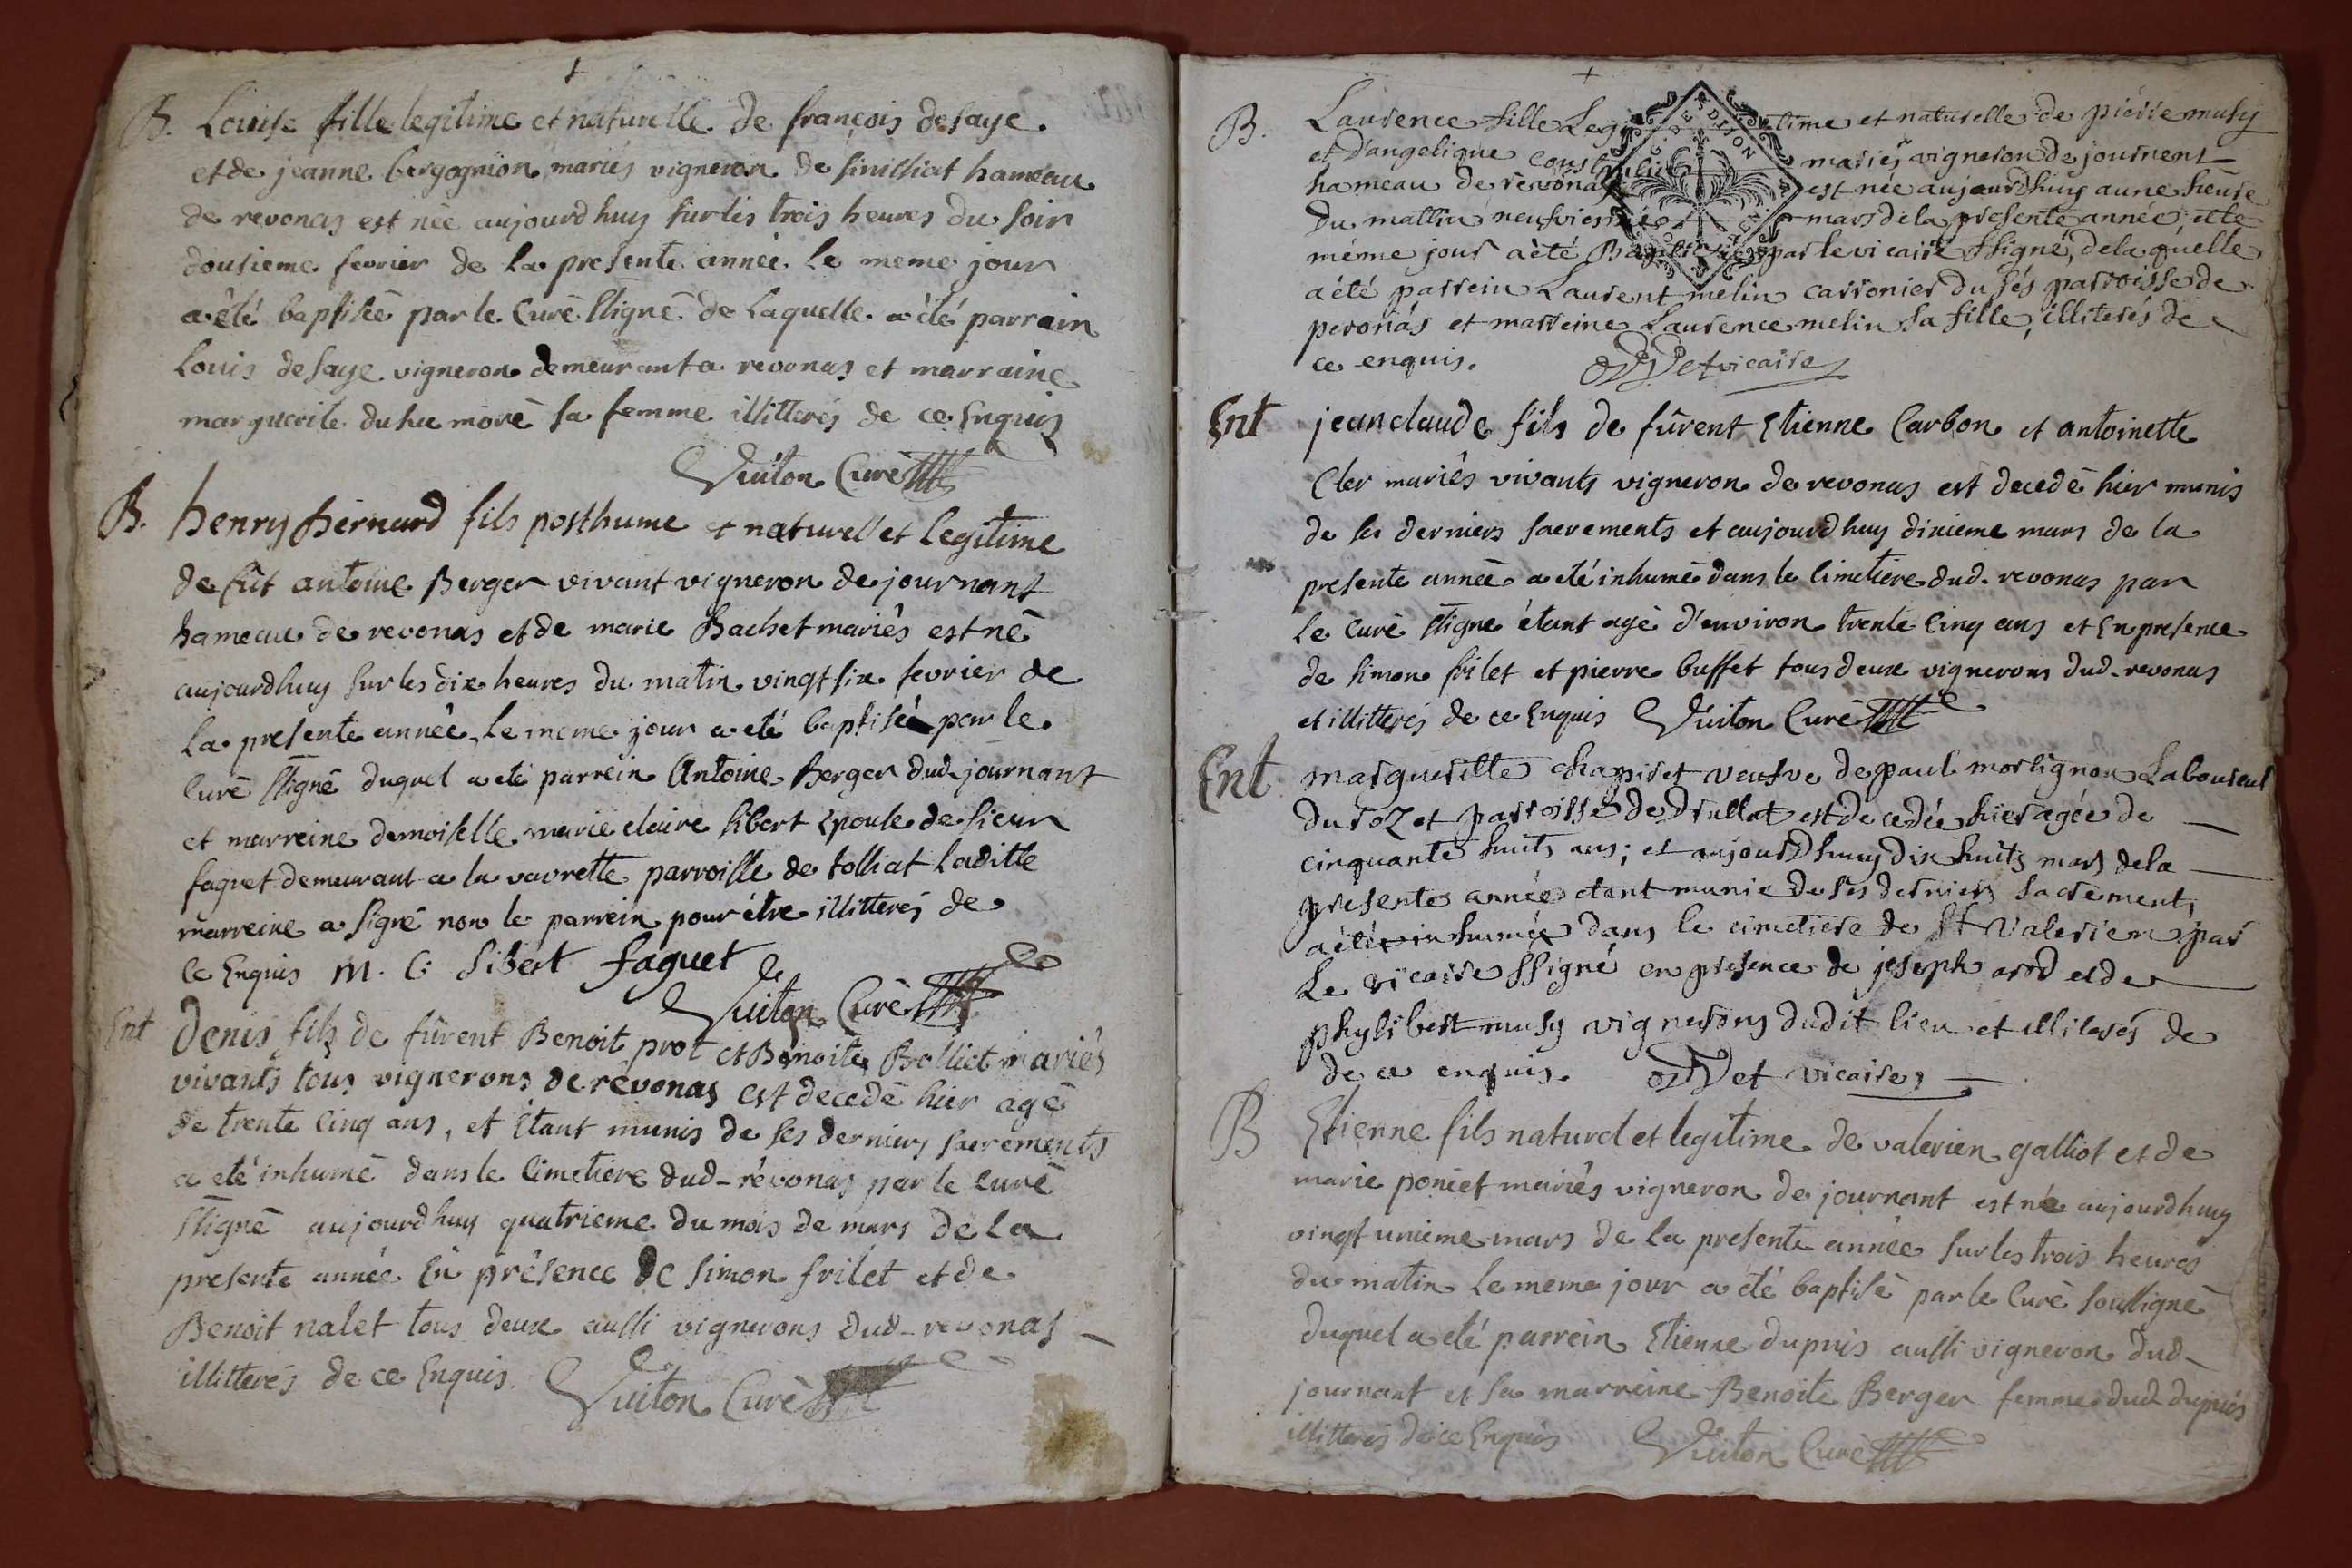 B. Louise fille legitime et naturelle de françois desaye
et de jeanne bergognion mariés vigneron de sinilliat hameau
de revonas est née aujourdhuy sur les trois heures du soir
dousieme fevrier de la presente année le meme jour
a été baptisée par le curé ssigné de laquelle a été parrain
Louis desaye vigneron demeurant a revonas et marraine
marguerite sa femme illitterés de ce Enquis
Vuiton Curé
B. henry bernard fils posthume et naturel et legitime
de fût antoine Berger vivant vigneron de journant
hameau de revonas et de marie Bachet mariés est né
aujourdhuy sur les dix heures du matin vingt six fevrier de
la presente année, le meme jour a eté baptisé par le
curé ssigné duquel a eté parrein Antoine Berger dud. journant
et marreine demoiselle marie claire sibert Epouse de sieur
faguet demeurant a la vavrette parroisse de tolliat laditte
marreine a signé non le parrein pour être illitterés de
ce Enquis M. C. Sibert faguet
Vuiton Curé
Ent Denis fils de fûrent Benoit prot et Benoite Bolliet mariés
vivants tous vignerons de revonas est decedé hier agé
de trente cinq ans, et Etant munis de ses derniers sacrements
a eté inhumé dans le cimetiere dud. revonas par le curé
ssigné aujourdhuy quatrieme du mois de mars de la
presente année En présence de simon frilet et de
Benoit nalet tous deux aussi vignerons dud. revonas
illitterés de ce Enquis. Vuiton Curé
B. Laurence fille Legitime et naturelle de pierre musy
et d'angelique mariés vigneron de journent
hameau de revonas est née aujourdhuy a une heure
du mattin neufviesme mars de la presente année, et le
même jour a été Baptisée par le vicaire ssigné, de laquelle
a été parrein Laurent melin carronier du sés parroisse de
peronas et marreine Laurence melin sa fille, illiterés de
ce enquis. vicaire
DE DIJON
Ent jeanclaude fils de fûrent Etienne Carbon et antoinette
Cler mariés vivants vigneron de revonas est decedé hier munis
de ses derniers sacrements et aujourdhuy dixieme mars de la
presente année a eté inhumé dans le cimetiere dud. revonas par
le curé ssigné étant agé d'environ trente cinq ans et En presence
de simon frilet et pierre buffet tous deux vignerons dud. revonas
et illitterés de ce Enquis Vuiton Curé
Ent margueritte chapiret veufve de paul morlignon Laboureul
du rozet parroisse de Drullat est decedée hier agée de
cinquante huits ans; et aujourdhuy dix huits mars de la
presente année etant munie de ses derniers sacrement,
a été inhumée dans le cimetiere de St Valerien par
Le vicaire ssigné en presence de joseph arod et de
phylibert musy vignerons dudit lieu et illiterés de
de ce enquis. vicaire
B Etienne fils naturel et legitime de valerien galliot et de
marie poncet mariés vigneron de journant est né aujourdhuy
vingt unieme mars de la presente année sur les trois heures
du matin le meme jour a été baptisé par le Curé soussigné
duquel a eté parrein Etienne dupuis aussi vigneron dud.
journant et sa marreine Benoite Berger femme dud dupuis
illitterés de ce Enquis Vuiton Curé